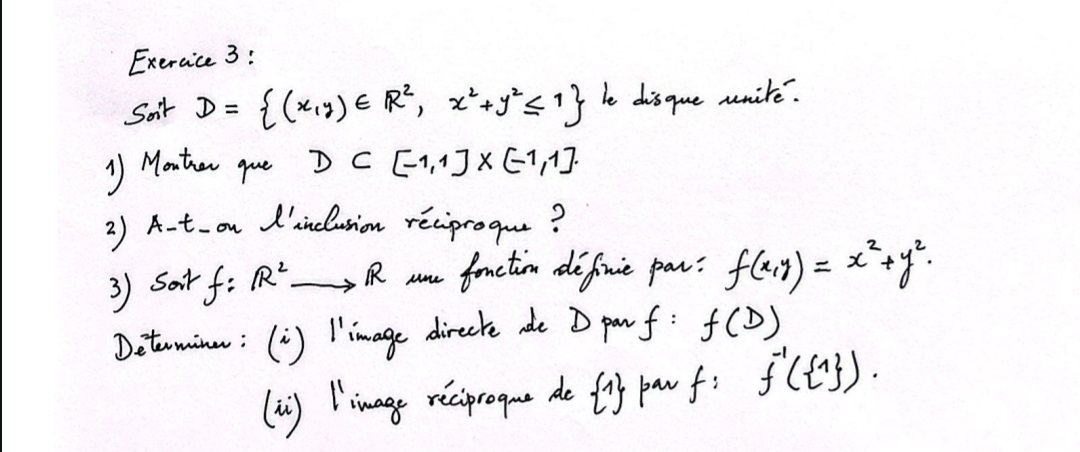 Exercice 3 :
Soit D = {(x,y) ∈ ℝ², x²+y² ≤ 1} le disque unité.
1) Montrer que D ⊂ [-1,1] × [-1,1].
2) A-t-on l'inclusion réciproque ?
3) Soit f : ℝ² ⟶ ℝ une fonction définie par : f(x,y) = x²+y².
Déterminer : (i) l'image directe de D par f : f(D)
(ii) l'image réciproque de {1} par f : f⁻¹({1}).